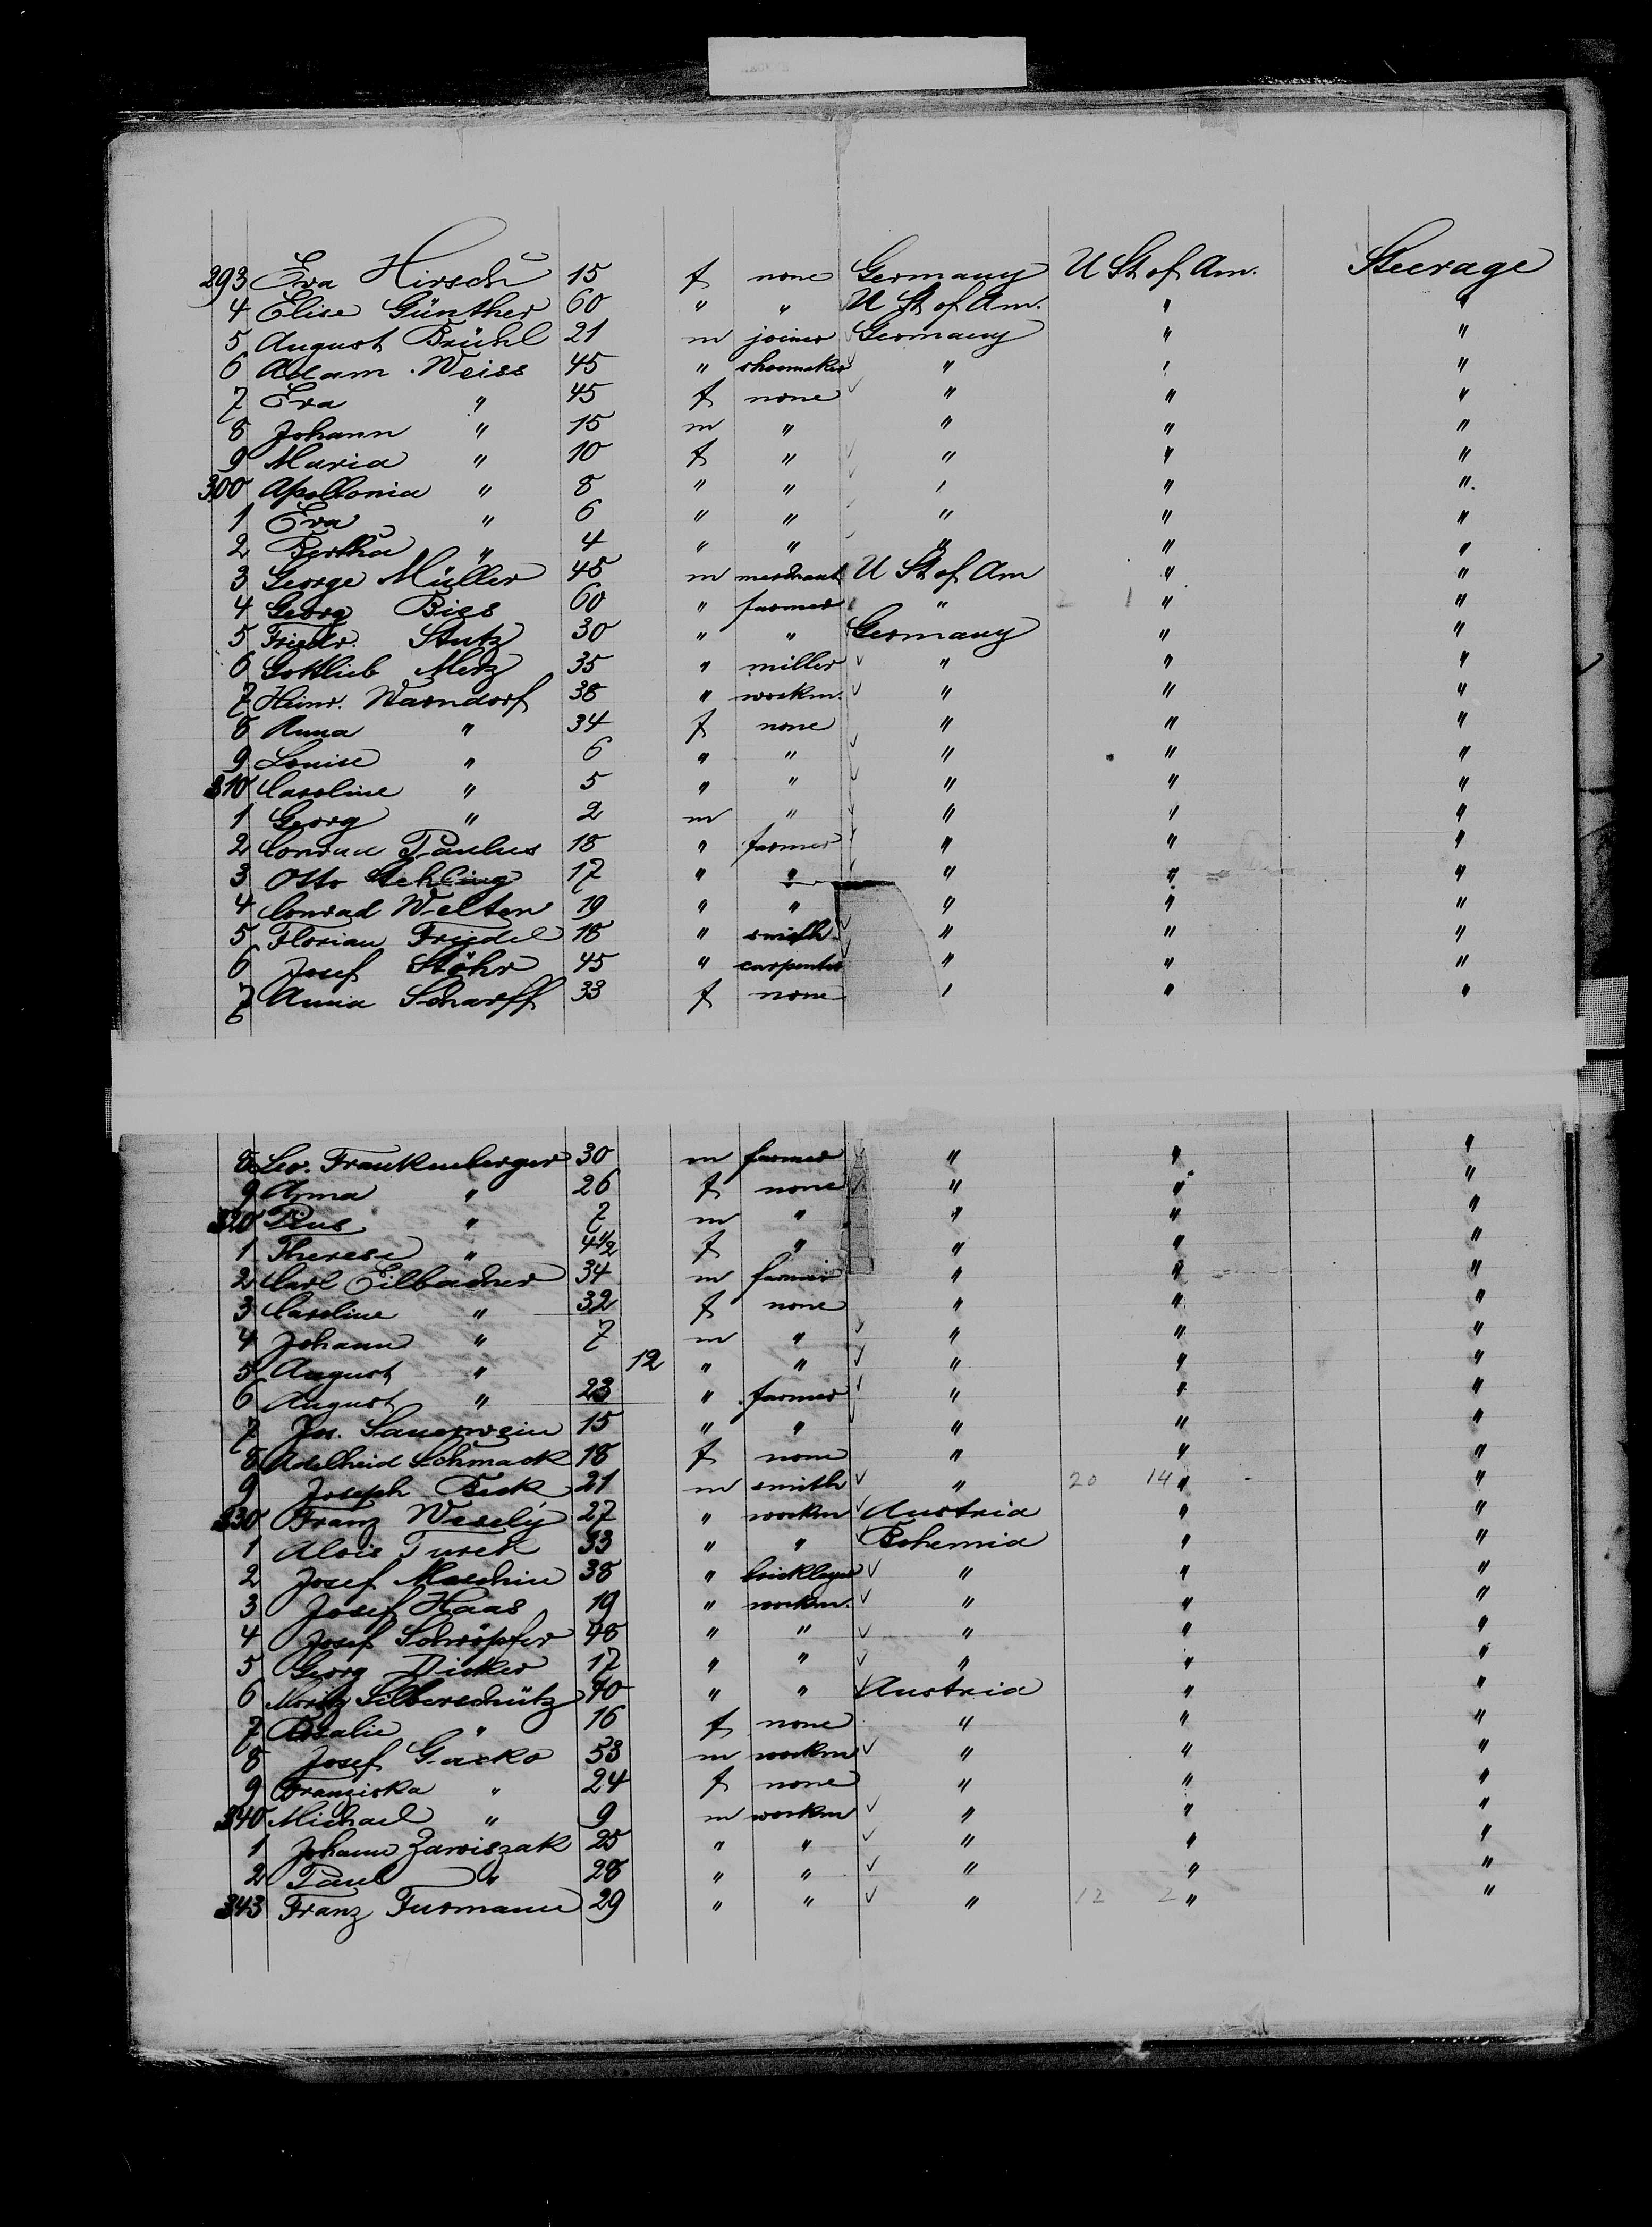 293 Eva Hirsch 15 f none Germany U St of Am. Steerage
4 Elise Günther 60 " " U St of Am. " "
5 August Brühl 21 m joiner Germany " "
6 Adam Weiss 45 " shoemaker " " "
7 Eva " 45 f none " " "
8 Johann " 15 m " " " "
9 Maria " 10 f " " " "
300 Apollonia " 8 " " " " "
1 Eva " 6 " " " " "
2 Bertha " 4 " " " " "
3 George Müller 48 m merchant U St of Am " "
4 Georg Biss 60 " farmer " 2 1 " "
5 Friedr. Stutz 30 " " Germany " "
6 Gottlieb Merz 35 " miller " " "
7 Heinr. Warndorf 38 " workm. " " "
8 Anna " 34 f none " " "
9 Louise " 6 " " " " "
310 Caroline " 5 " " " " "
1 Georg " 2 m " " " "
2 Conrad Paulus 18 " farmer " " "
3 Otto Stehling 17 " " " " "
4 Conrad Welten 19 " " " " "
5 Florian Friedel 18 " smith " " "
6 Josef Stöhr 45 " carpenter " " "
7 Anna Scharff 33 f none " " "
8 Leo. Frankenberger 30 m farmer " " "
9 Anna " 26 f none " " "
320 Pius " 7 m " " " "
1 Therese " 4 1/2 f " " " "
2 Carl Eilbacher 34 m farmer " " "
3 Caroline " 32 f none " " "
4 Johann " 7 m " " " "
5 August " 12 " " " " "
6 August " 23 " farmer " " "
7 Jn. Sauerwein 15 " " " " "
8 Adelheid Schmack 18 f none " " "
9 Joseph Beck 21 m smith " 20 14 " "
330 Franz Wesely 27 " workm Austria " "
1 Alois Turek 33 " " Bohemia " "
2 Josef Maschin 38 " bricklayer " " "
3 Josef Haas 19 " workm. " " "
4 Josef Schröpfer 48 " " " " "
5 Georg Dicker 17 " " " " "
6 Moritz Silberschütz 40 " " Austria " "
7 Rosalie " 16 f none " " "
8 Josef Gacko 53 m workm " " "
9 Franziska " 24 f none " " "
340 Michael " 9 m workm " " "
1 Johann Zawiszak 25 " " " " "
2 Paul " 28 " " " " "
343 Franz Furmann 29 " " " 12 2 " "